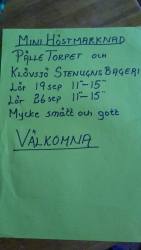 MINI HÖSTMARKNAD
PÅLLE TORPET OCH
KLÖVSJÖ STENUGNSBAGERI
LÖR 19 SEP 11-15
LÖR 26 SEP 11-15
MYCKE SMÅTT OCH GOTT
VÄLKOMNA